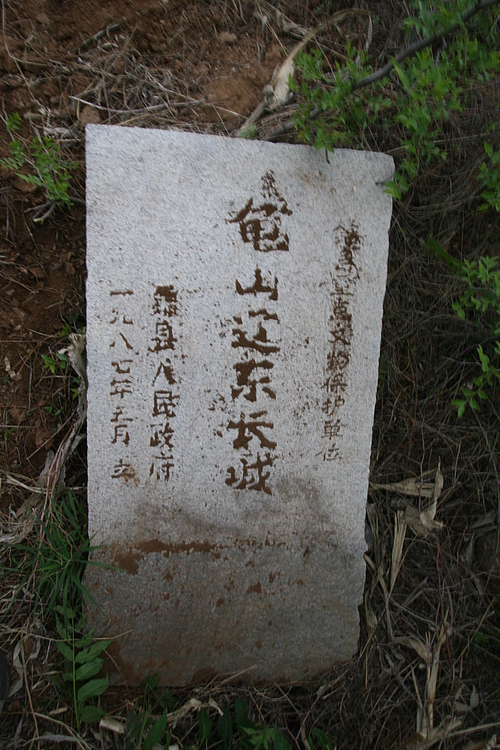 文物保护单位
龟山辽东长城
县人民政府
一九八七年五月立